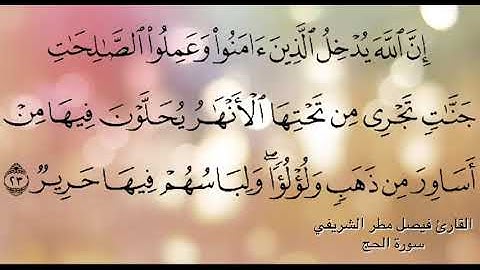 إِنَّ ٱللَّهَ يُدْخِلُ ٱلَّذِينَ ءَامَنُوا۟ وَعَمِلُوا۟ ٱلصَّـٰلِحَـٰتِ
جَنَّـٰتٍ تَجْرِى مِن تَحْتِهَا ٱلْأَنْهَـٰرُ يُحَلَّوْنَ فِيهَا مِنْ
أَسَاوِرَ مِن ذَهَبٍ وَلُؤْلُؤًا ۖ وَلِبَاسُهُمْ فِيهَا حَرِيرٌ ٢٣
القارئ فيصل مطر الشريفي
سورة الحج